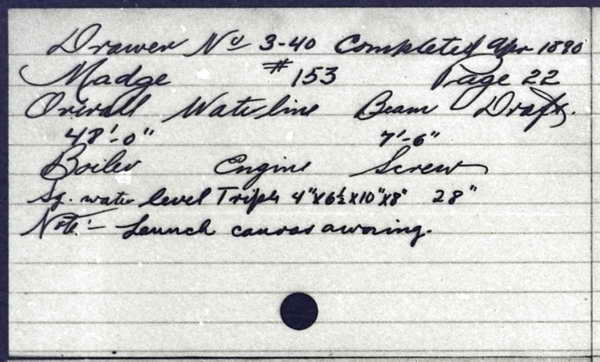 Drawer No 3-40 Completed Apr 1890
Madge #153 Page 22
Overall Waterline Beam Draft.
48'-0" 7'-6"
Boiler Engine Screw
Sq. water level Triple 4"x6½x10"x8" 28"
Note:- Launch canvas awning.